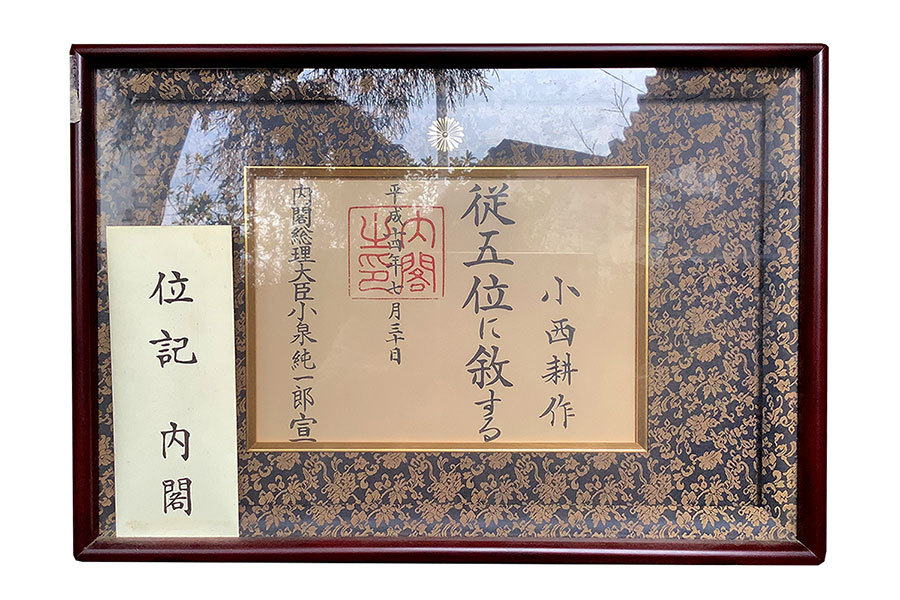 小西耕作
従五位に敘する
平成十四年七月三十日
内閣之印
内閣総理大臣小泉純一郎宣
位記 内閣